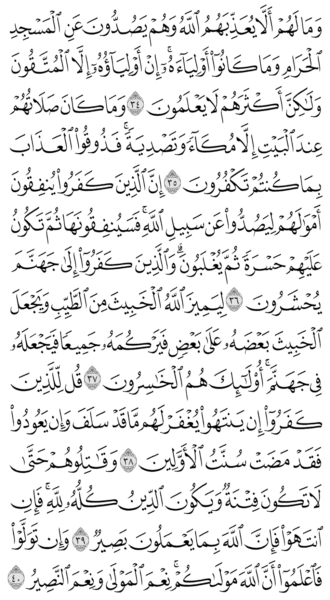 وَمَا لَهُمْ أَلَّا يُعَذِّبَهُمُ ٱللَّهُ وَهُمْ يَصُدُّونَ عَنِ ٱلْمَسْجِدِ
ٱلْحَرَامِ وَمَا كَانُوٓا۟ أَوْلِيَآءَهُۥٓ ۚ إِنْ أَوْلِيَآؤُهُۥٓ إِلَّا ٱلْمُتَّقُونَ
وَلَٰكِنَّ أَكْثَرَهُمْ لَا يَعْلَمُونَ ٣٤ وَمَا كَانَ صَلَاتُهُمْ
عِندَ ٱلْبَيْتِ إِلَّا مُكَآءً وَتَصْدِيَةً ۚ فَذُوقُوا۟ ٱلْعَذَابَ
بِمَا كُنتُمْ تَكْفُرُونَ ٣٥ إِنَّ ٱلَّذِينَ كَفَرُوا۟ يُنفِقُونَ
أَمْوَٰلَهُمْ لِيَصُدُّوا۟ عَن سَبِيلِ ٱللَّهِ ۚ فَسَيُنفِقُونَهَا ثُمَّ تَكُونُ
عَلَيْهِمْ حَسْرَةً ثُمَّ يُغْلَبُونَ ۗ وَٱلَّذِينَ كَفَرُوٓا۟ إِلَىٰ جَهَنَّمَ
يُحْشَرُونَ ٣٦ لِيَمِيزَ ٱللَّهُ ٱلْخَبِيثَ مِنَ ٱلطَّيِّبِ وَيَجْعَلَ
ٱلْخَبِيثَ بَعْضَهُۥ عَلَىٰ بَعْضٍ فَيَرْكُمَهُۥ جَمِيعًا فَيَجْعَلَهُۥ
فِى جَهَنَّمَ ۚ أُو۟لَٰٓئِكَ هُمُ ٱلْخَٰسِرُونَ ٣٧ قُل لِّلَّذِينَ
كَفَرُوٓا۟ إِن يَنتَهُوا۟ يُغْفَرْ لَهُم مَّا قَدْ سَلَفَ وَإِن يَعُودُوا۟
فَقَدْ مَضَتْ سُنَّتُ ٱلْأَوَّلِينَ ٣٨ وَقَٰتِلُوهُمْ حَتَّىٰ
لَا تَكُونَ فِتْنَةٌ وَيَكُونَ ٱلدِّينُ كُلُّهُۥ لِلَّهِ ۚ فَإِنِ
ٱنتَهَوْا۟ فَإِنَّ ٱللَّهَ بِمَا يَعْمَلُونَ بَصِيرٌ ٣٩ وَإِن تَوَلَّوْا۟
فَٱعْلَمُوٓا۟ أَنَّ ٱللَّهَ مَوْلَىٰكُمْ ۚ نِعْمَ ٱلْمَوْلَىٰ وَنِعْمَ ٱلنَّصِيرُ ٤٠